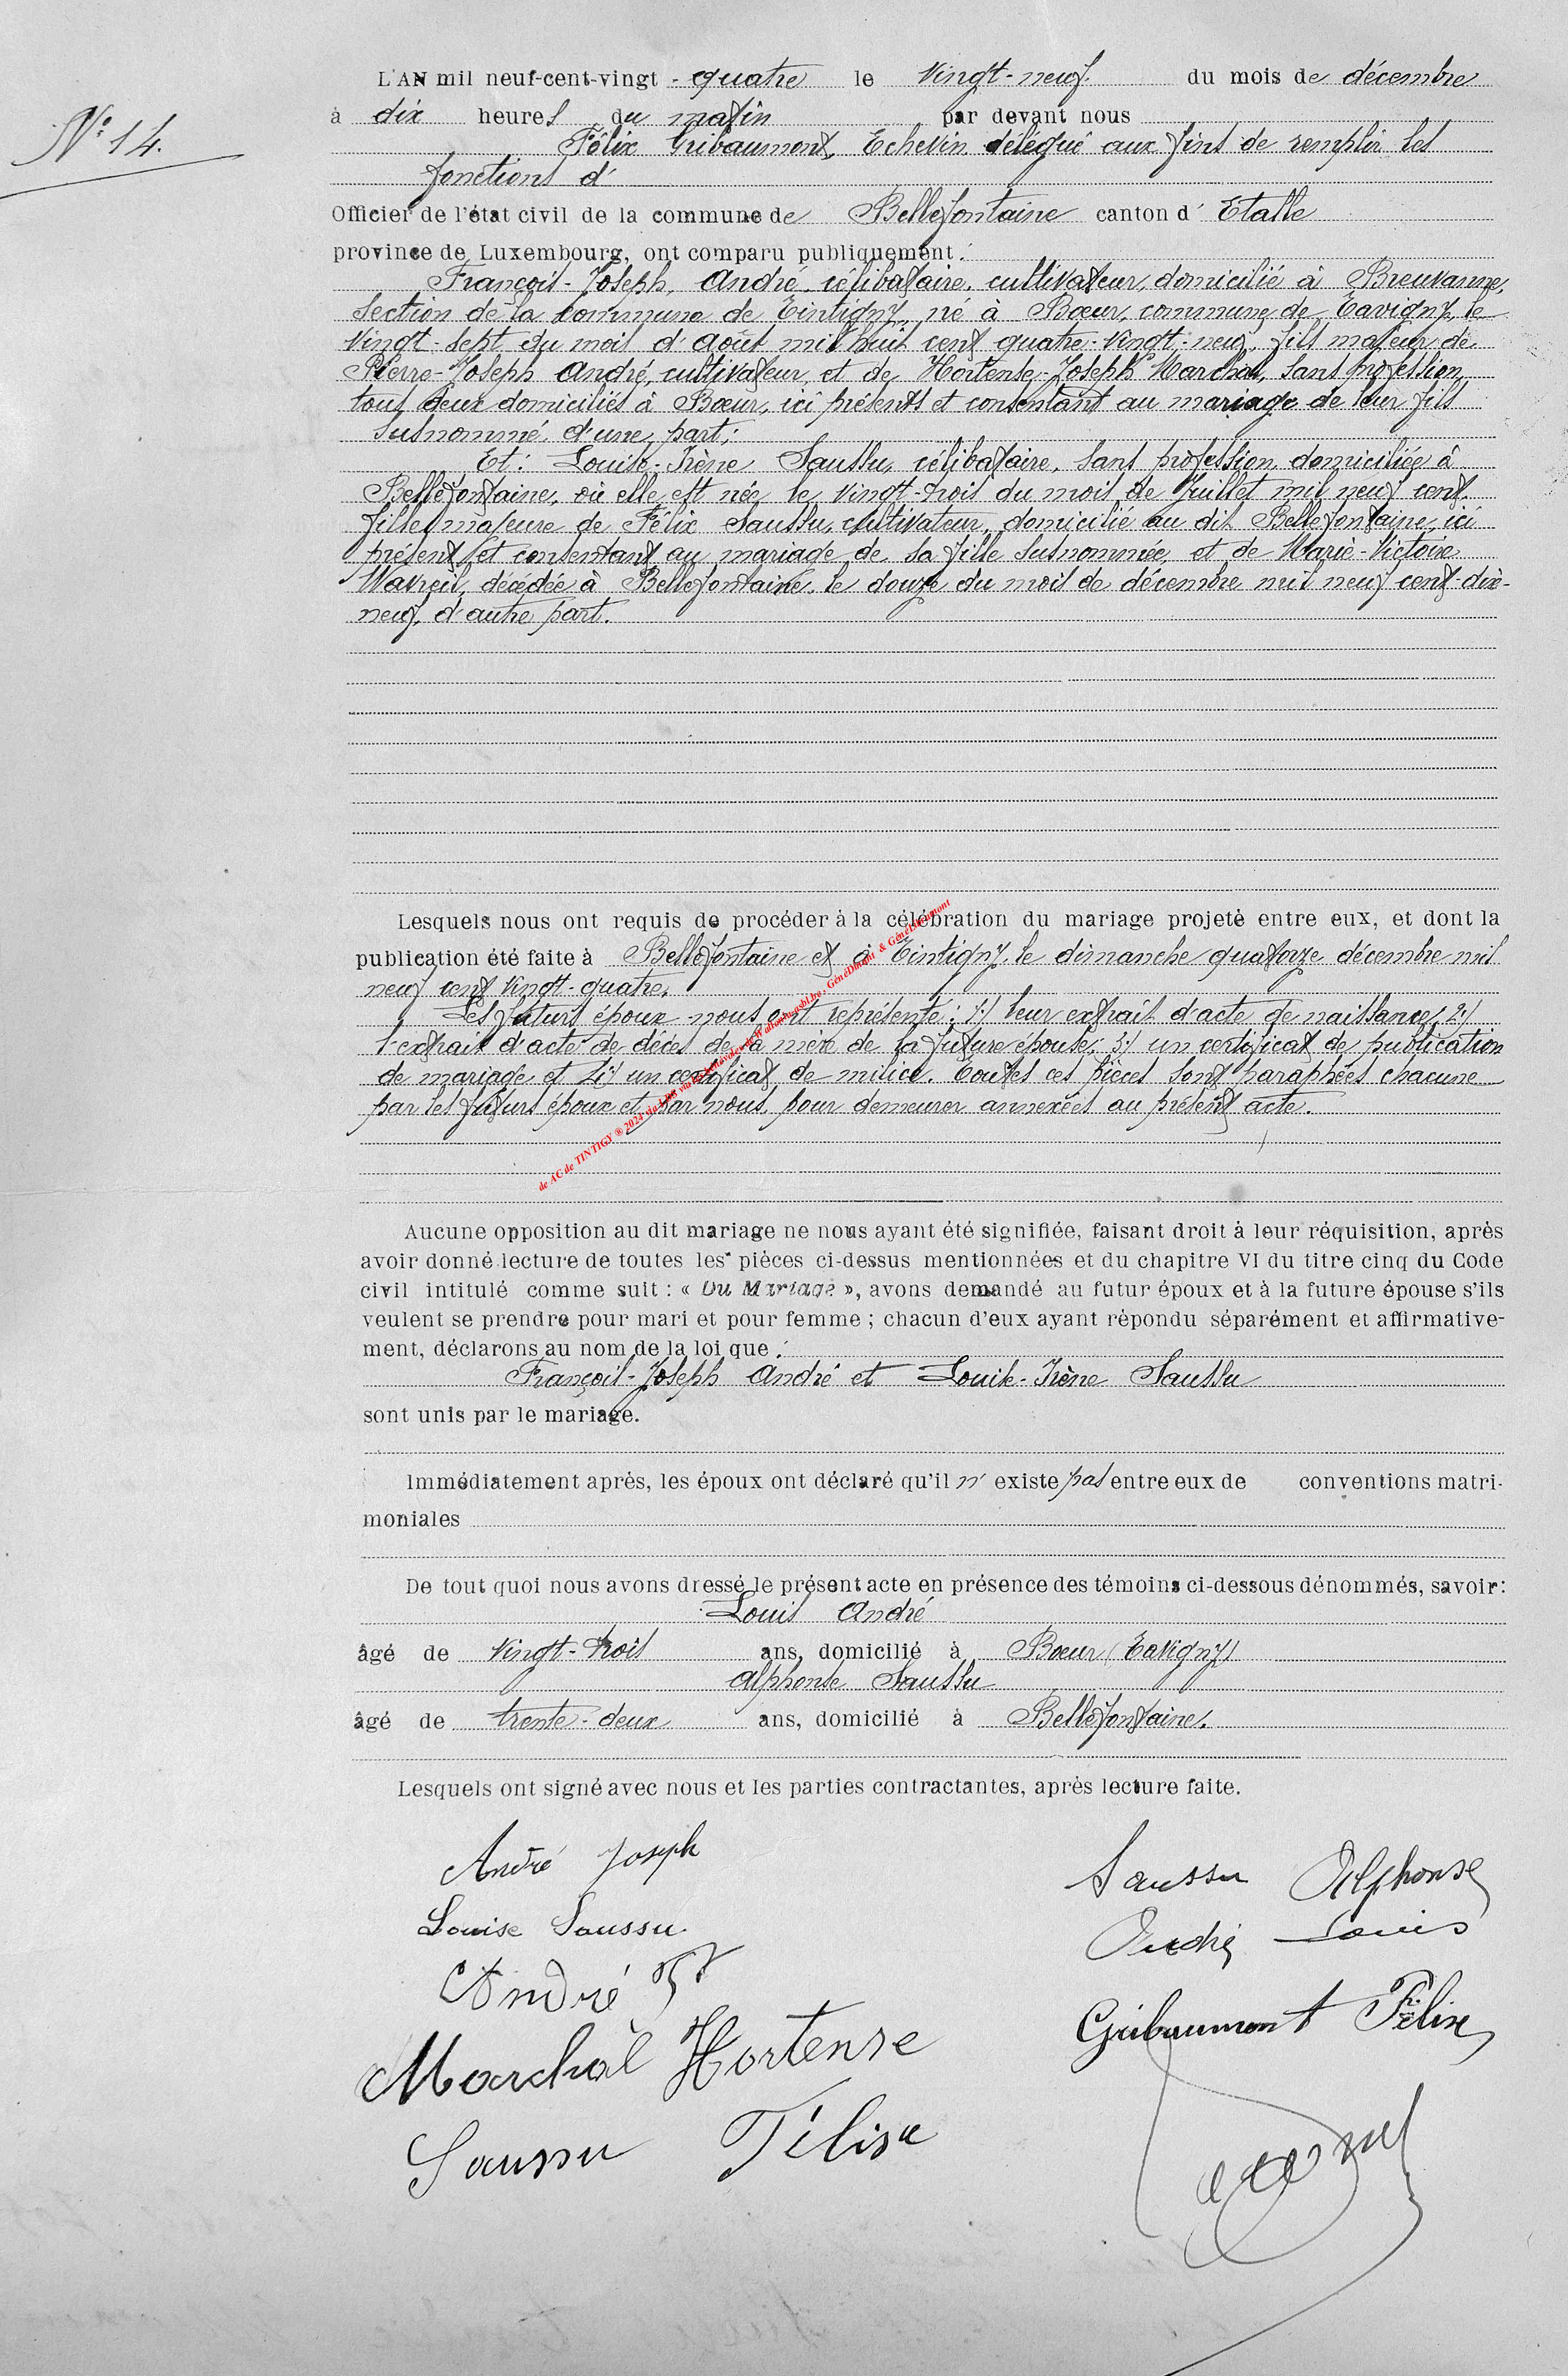 N° 14.
L'AN mil neuf-cent-vingt-quatre le vingt-neuf du mois de décembre
à dix heures du matin par devant nous
Félix Gribaumont, Echevin délégué aux fins de remplir les
fonctions d'
Officier de l'état civil de la commune de Bellefontaine canton d'Etalle
province de Luxembourg, ont comparu publiquement :
François-Joseph, André, célibataire, cultivateur, domicilié à Breuvanne,
section de la commune de Tintigny, né à Bœur, commune de Tavigny, le
vingt-sept du mois d'août mil huit cent quatre-vingt-neuf, fils majeur de
Pierre-Joseph André, cultivateur, et de Hortense-Joseph Marchal, sans profession,
tous deux domiciliés à Bœur, ici présents et consentant au mariage de leur fils
susnommé, d'une part ;
Et : Louise-Irène Saussu, célibataire, sans profession, domiciliée à
Bellefontaine, où elle est née le vingt-trois du mois de Juillet mil neuf cent,
fille majeure de Félix Saussu, cultivateur, domicilié au dit Bellefontaine, ici
présent et consentant au mariage de sa fille susnommée, et de Marie-Victoire
Wavreil, décédée à Bellefontaine, le douze du mois de décembre mil neuf cent-dix-
neuf, d'autre part.
Lesquels nous ont requis de procéder à la célébration du mariage projeté entre eux, et dont la
publication été faite à Bellefontaine et à Tintigny, le dimanche quatorze décembre mil
neuf cent vingt-quatre.
Les futurs époux nous ont représenté : 1:/ leur extrait d'acte de naissance, 2:/
l'extrait d'acte de décès de la mère de la future épouse ; 3:/ un certificat de publication
de mariage et 4:/ un certificat de milice. Toutes ces pièces sont paraphées chacune
par les futurs époux et par nous, pour demeurer annexées au présent acte.
de AC de TINTIGY ® 2024 via
& GénéDinant & GénéDiamont
Aucune opposition au dit mariage ne nous ayant été signifiée, faisant droit à leur réquisition, après
avoir donné lecture de toutes les pièces ci-dessus mentionnées et du chapitre VI du titre cinq du Code
civil intitulé comme suit : « Du Mariage », avons demandé au futur époux et à la future épouse s'ils
veulent se prendre pour mari et pour femme ; chacun d'eux ayant répondu séparément et affirmative-
ment, déclarons au nom de la loi que :
François-Joseph André et Louise-Irène Saussu
sont unis par le mariage.
Immédiatement après, les époux ont déclaré qu'il n'existe pas entre eux de conventions matri-
moniales
De tout quoi nous avons dressé le présent acte en présence des témoins ci-dessous dénommés, savoir:
Louis André
âgé de vingt-trois ans, domicilié à Bœur (Tavigny)
Alphonse Saussu
âgé de trente-deux ans, domicilié à Bellefontaine.
Lesquels ont signé avec nous et les parties contractantes, après lecture faite.
André Joseph
Saussu Alphonse
Louise Saussu.
André Louis
André
Gribaumont Félix
Marchal Hortense
Saussu Félix